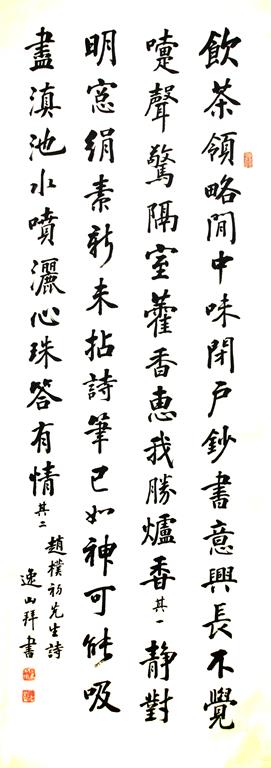 飲茶領略閒中味閉戶鈔書意興長不覺
嚏聲驚隔室藿香惠我勝爐香其一靜對
明窓絹素新未拈詩筆已如神可能吸
盡滇池水噴灑心珠答有情其二
趙樸初先生詩
逸山拜書